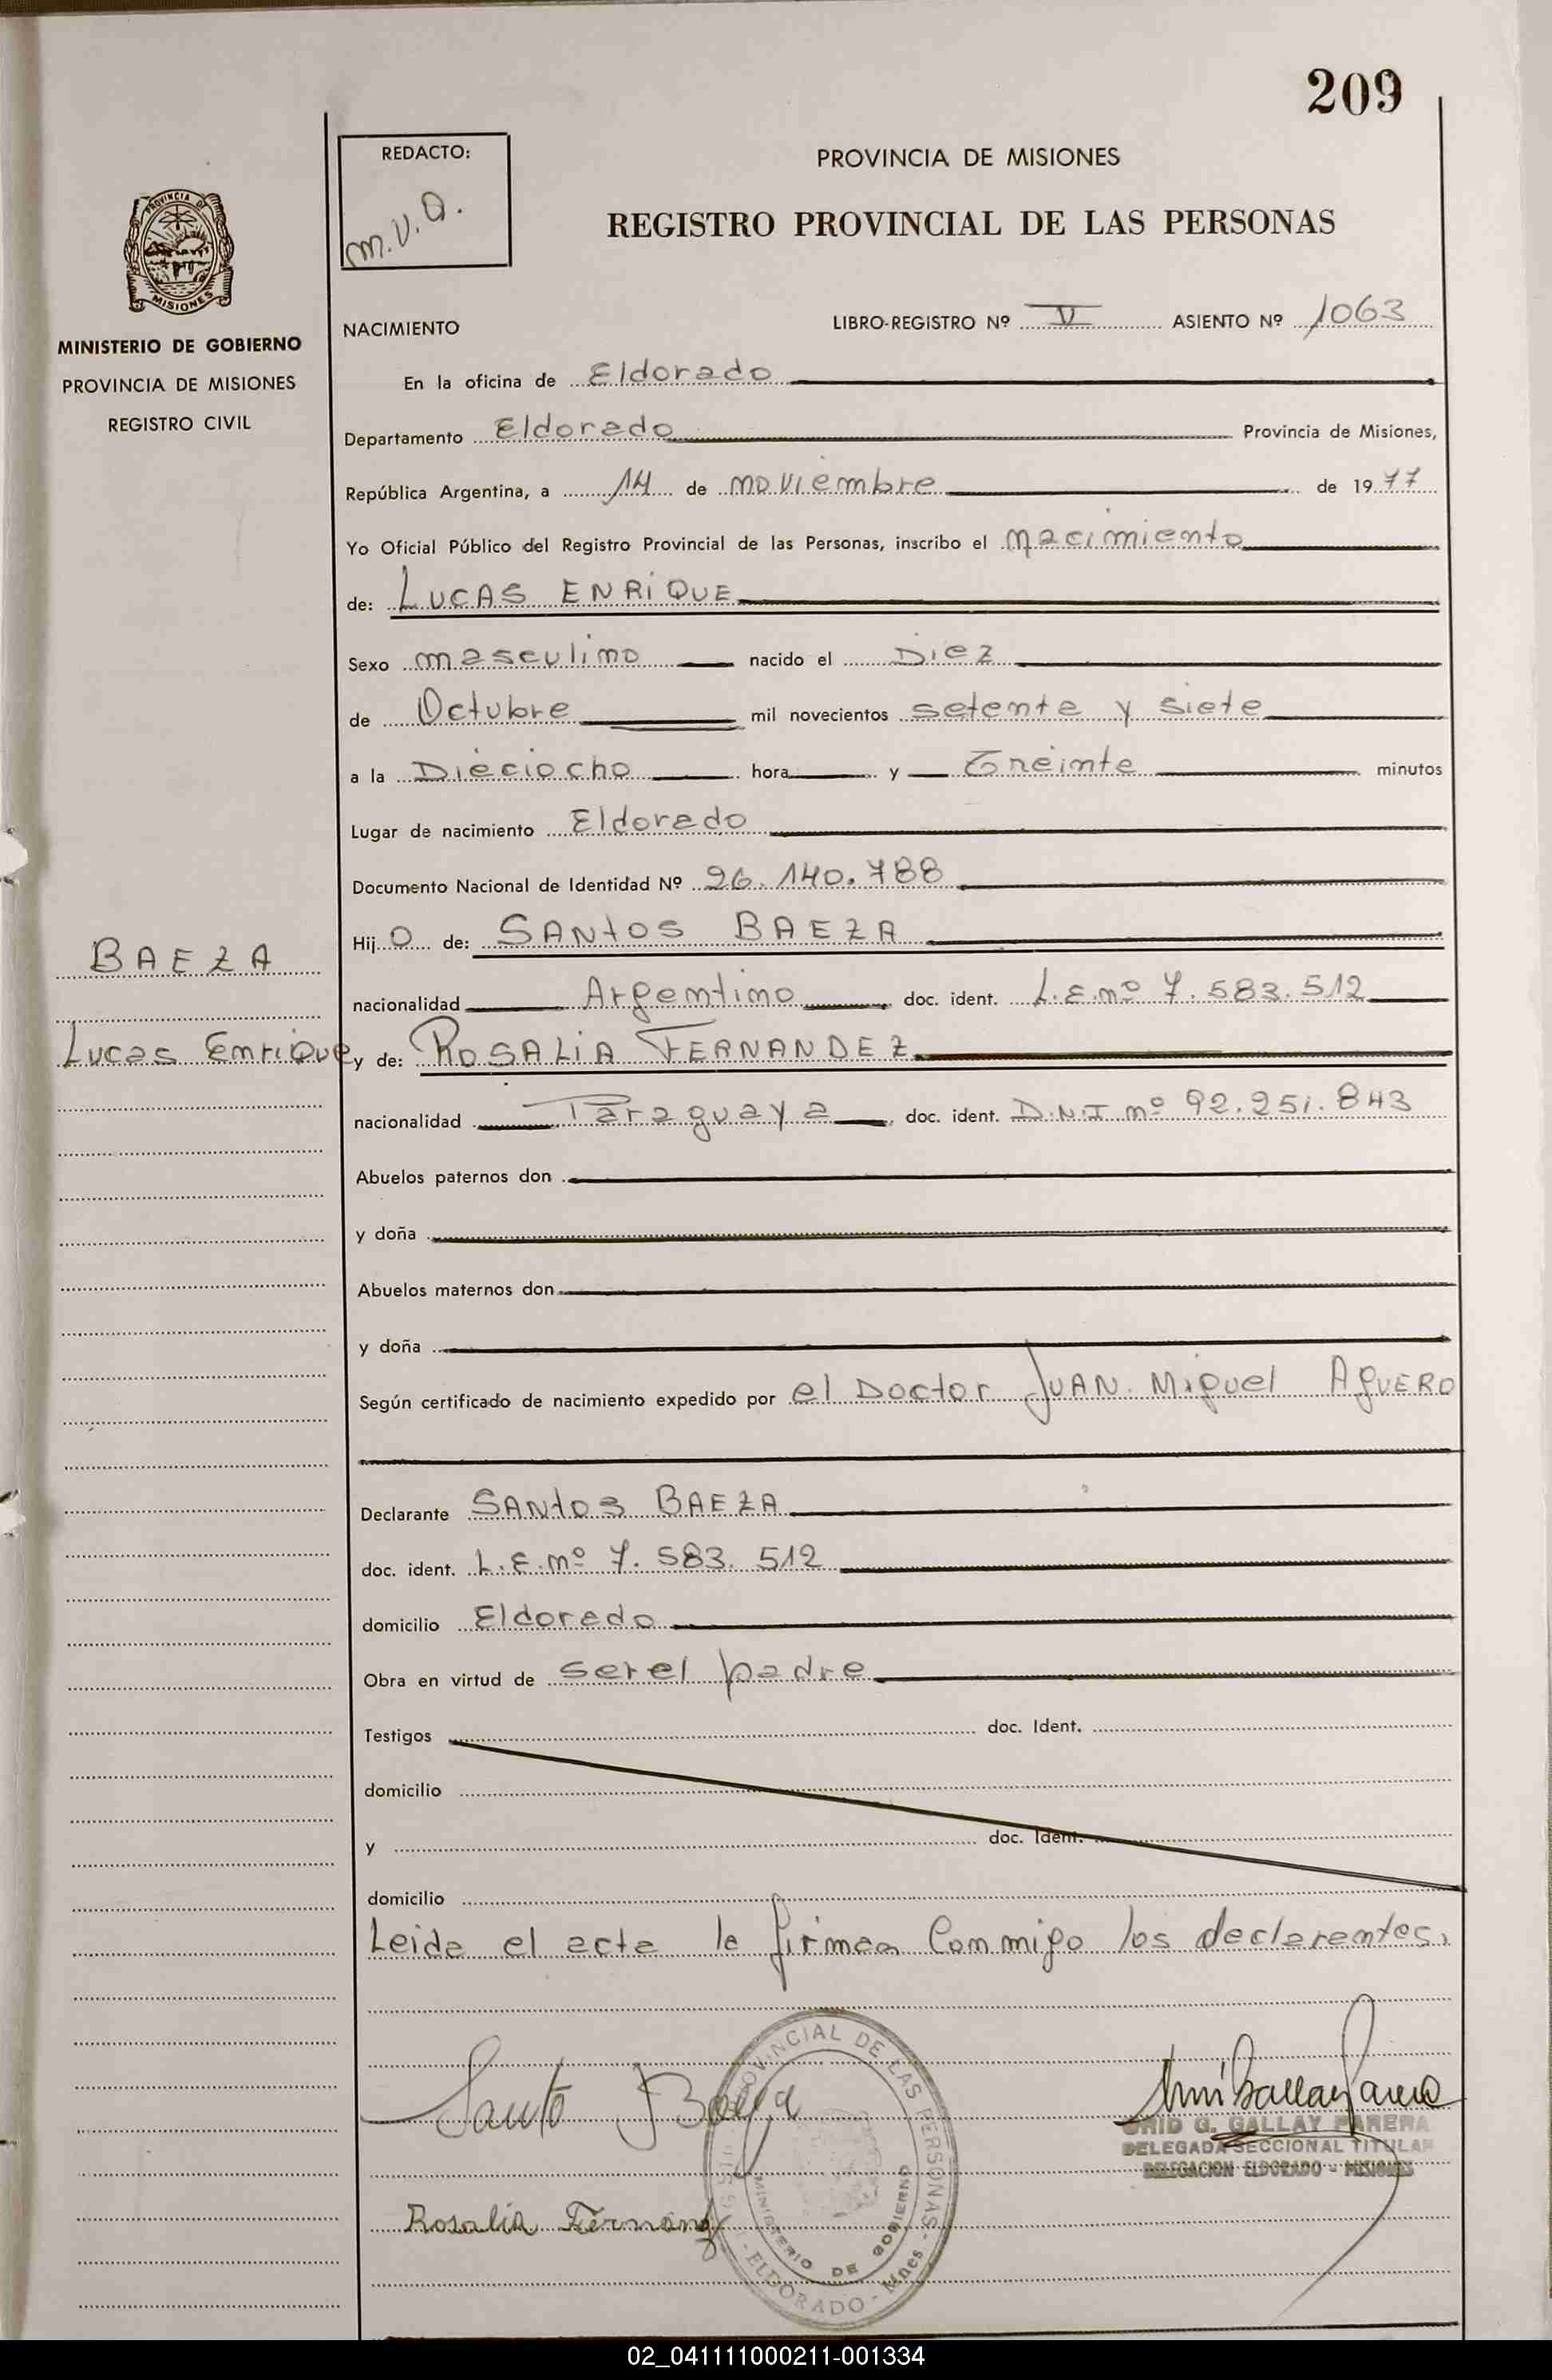 209
REDACTO:
M.V.Q.
PROVINCIA DE MISIONES
REGISTRO PROVINCIAL DE LAS PERSONAS
PROVINCIA DE
MISIONES
MINISTERIO DE GOBIERNO
PROVINCIA DE MISIONES
REGISTRO CIVIL
NACIMIENTO LIBRO-REGISTRO Nº V ASIENTO Nº 1063
En la oficina de Eldorado
Departamento Eldorado Provincia de Misiones,
República Argentina, a 14 de noviembre de 1977
Yo Oficial Público del Registro Provincial de las Personas, inscribo el nacimiento
de: LUCAS ENRIQUE
Sexo masculino nacido el Diez
de Octubre mil novecientos setenta y siete
a la Dieciocho hora y Treinta minutos
Lugar de nacimiento Eldorado
Documento Nacional de Identidad Nº 26.140.788
BAEZA
Hijo de: SANTOS BAEZA
nacionalidad Argentino doc. ident. L.E.nº 7.583.512
Lucas Enrique
y de: ROSALIA FERNANDEZ
nacionalidad Paraguaya doc. ident. D.N.I nº 92.251.843
Abuelos paternos don
y doña
Abuelos maternos don
y doña
Según certificado de nacimiento expedido por el Doctor JUAN Miguel AGUERO
Declarante SANTOS BAEZA
doc. ident. L.E.nº 7.583.512
domicilio Eldorado
Obra en virtud de ser el padre
Testigos doc. Ident.
domicilio
y doc. Ident.
domicilio
Leida el acta la firman conmigo los declarantes.
Santo Baeza
PROVINCIAL DE LAS PERSONAS
MINISTERIO DE GOBIERNO
- ELDORADO - Mnes -
G. GALLAY PARERA
DELEGADA SECCIONAL TITULAR
DELEGACION ELDORADO - MISIONES
Rosalia Fernandz
02_041111000211-001334